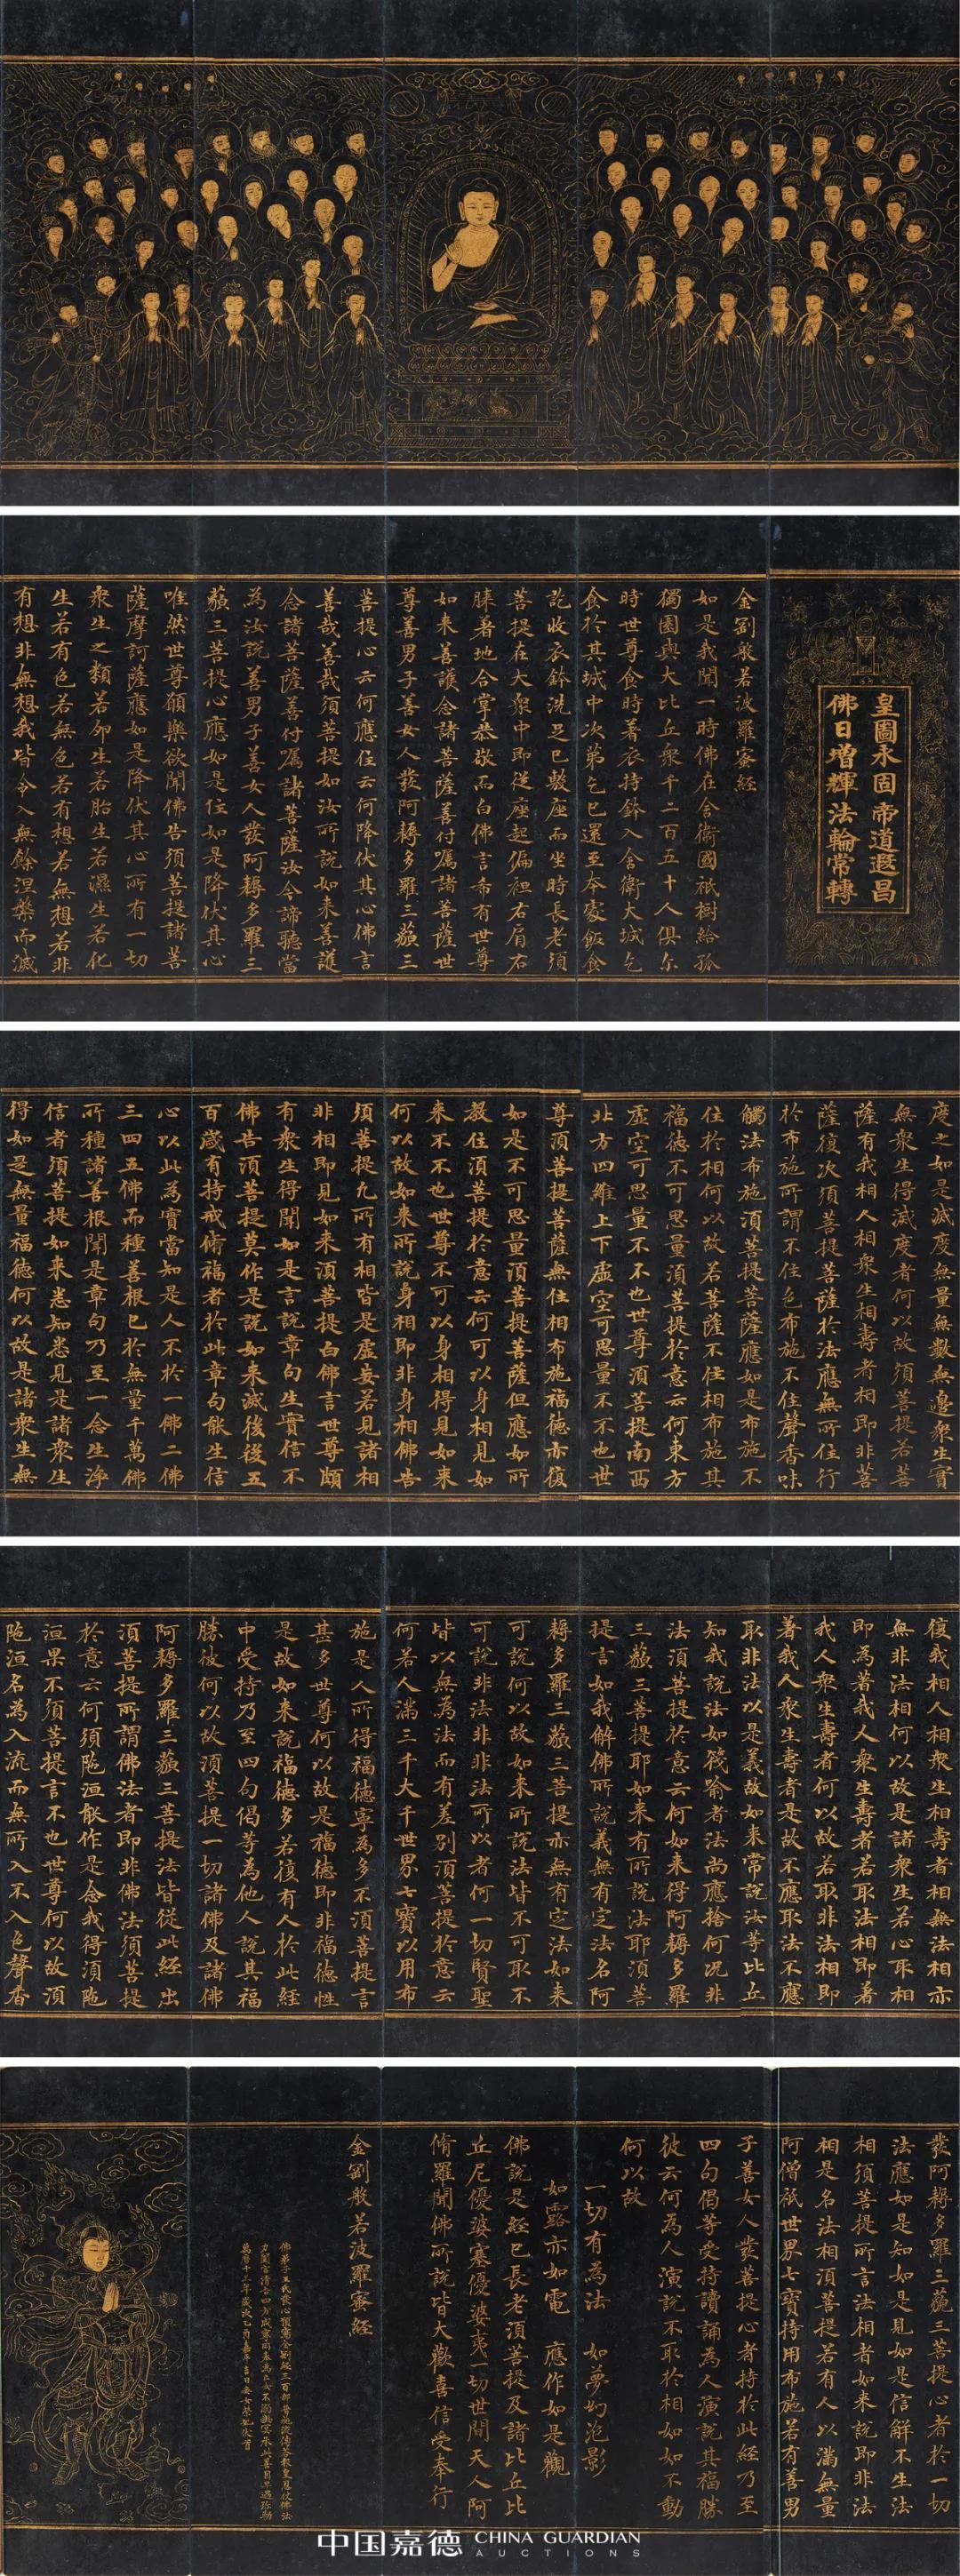 皇圖永固帝道遐昌
佛日增輝法輪常轉
金剛般若波羅蜜經
如是我聞一時佛在舍衛國祇樹給孤
獨園與大比丘衆千二百五十人俱尒
時世尊食時著衣持鉢入舍衛大城乞
食於其城中次第乞已還至本處飯食
訖收衣鉢洗足已敷座而坐時長老須
菩提在大衆中即從座起偏袒右肩右
膝著地合掌恭敬而白佛言希有世尊
如来善護念諸菩薩善付囑諸菩薩世
尊善男子善女人發阿耨多羅三藐三
菩提心云何應住云何降伏其心佛言
善哉善哉須菩提如汝所說如来善護
念諸菩薩善付囑諸菩薩汝今諦聽當
為汝說善男子善女人發阿耨多羅三
藐三菩提心應如是住如是降伏其心
唯然世尊願樂欲聞佛告須菩提諸菩
薩摩訶薩應如是降伏其心所有一切
衆生之類若卵生若胎生若濕生若化
生若有色若無色若有想若無想若非
有想非無想我皆令入無餘涅槃而滅
度之如是滅度無量無數無邊衆生實
無衆生得滅度者何以故須菩提若菩
薩有我相人相衆生相壽者相即非菩
薩復次須菩提菩薩於法應無所住行
於布施所謂不住色布施不住聲香味
觸法布施須菩提菩薩應如是布施不
住於相何以故若菩薩不住相布施其
福德不可思量須菩提於意云何東方
虛空可思量不不也世尊須菩提南西
北方四維上下虛空可思量不不也世
尊須菩提菩薩無住相布施福德亦復
如是不可思量須菩提菩薩但應如所
教住須菩提於意云何可以身相見如
来不不也世尊不可以身相得見如来
何以故如来所說身相即非身相佛告
須菩提凡所有相皆是虛妄若見諸相
非相即見如来須菩提白佛言世尊頗
有衆生得聞如是言說章句生實信不
佛告須菩提莫作是說如来滅後後五
百歲有持戒脩福者於此章句能生信
心以此為實當知是人不於一佛二佛
三四五佛而種善根已於無量千萬佛
所種諸善根聞是章句乃至一念生淨
信者須菩提如来悉知悉見是諸衆生
得如是無量福德何以故是諸衆生無
復我相人相衆生相壽者相無法相亦
無非法相何以故是諸衆生若心取相
即為著我人衆生壽者若取法相即著
我人衆生壽者何以故若取非法相即
著我人衆生壽者是故不應取法不應
取非法以是義故如来常說汝等比丘
知我說法如筏喻者法尚應捨何况非
法須菩提於意云何如来得阿耨多羅
三藐三菩提耶如来有所說法耶須菩
提言如我解佛所說義無有定法名阿
耨多羅三藐三菩提亦無有定法如来
可說何以故如来所說法皆不可取不
可說非法非非法所以者何一切賢聖
皆以無為法而有差別須菩提於意云
何若人滿三千大千世界七寶以用布
施是人所得福德寧為多不須菩提言
甚多世尊何以故是福德即非福德性
是故如来說福德多若復有人於此經
中受持乃至四句偈等為他人說其福
勝彼何以故須菩提一切諸佛及諸佛
阿耨多羅三藐三菩提法皆從此經出
須菩提所謂佛法者即非佛法須菩提
於意云何須陁洹能作是念我得須陁
洹果不須菩提言不也世尊何以故須
陁洹名為入流而無所入不入色聲香
發阿耨多羅三藐三菩提心者於一切
法應如是知如是見如是信解不生法
相須菩提所言法相者如来說即非法
相是名法相須菩提若有人以滿無量
阿僧祇世界七寶持用布施若有善男
子善女人發菩提心者持於此經乃至
四句偈等受持讀誦為人演說其福勝
彼云何為人演說不取於相如如不動
何以故
一切有為法 如夢幻泡影
如露亦如電 應作如是觀
佛說是經已長老須菩提及諸比丘比
丘尼優婆塞優婆夷一切世間天人阿
脩羅聞佛所說皆大歡喜信受奉行
金剛般若波羅蜜經
中国嘉德 CHINA GUARDIAN
AUCTIONS